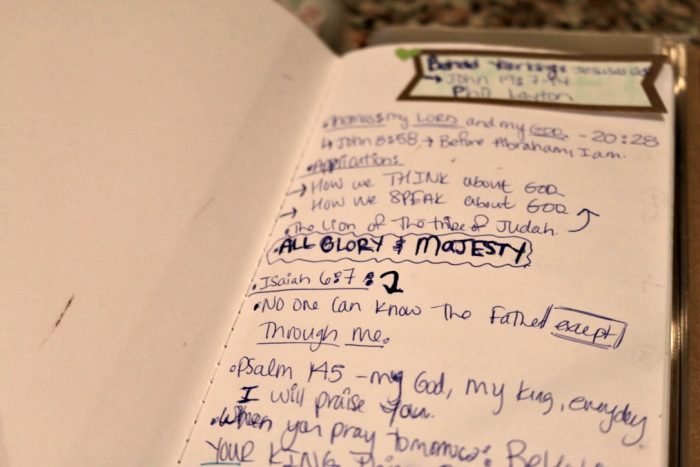 Behold Your King: Jesus is God
→ John 19: 7-14
Phil Layton
• Thomas: my LORD and my GOD. - 20:28
↳ John 8:58 → Before Abraham, I am.
• Application:
→ How we THINK about GOD
→ How we SPEAK about GOD
• The Lion of The tribe of Judah.
• ALL GLORY & MAJESTY
• Isaiah 6:7 :
• No one can know the Father except
Through me.
• Psalm 145 - my God, my king, everyday
I will praise You.
• When you pray tomorrow: Behold
YOUR KING